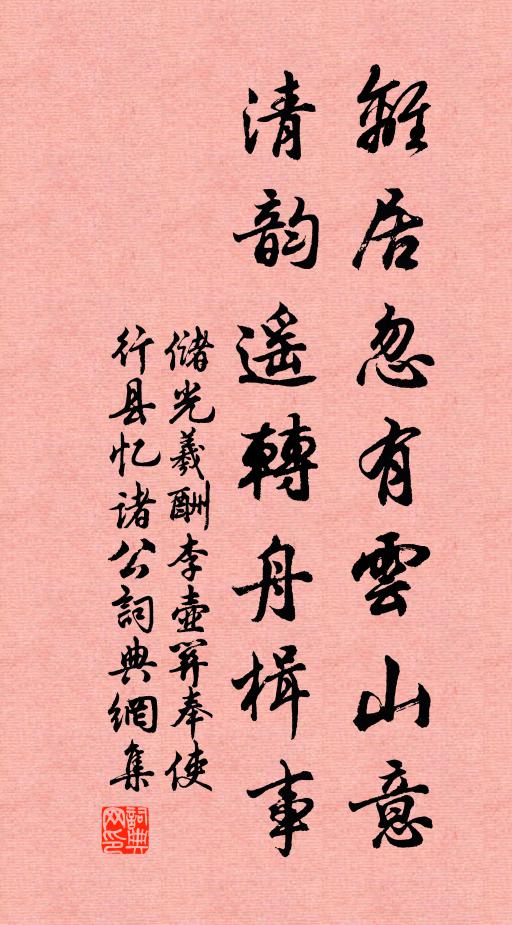 離居忽有雲山意
清韵遥轉舟楫事
儲光羲酬李壺關奉使
行县忆诸公詞典網集
詞典网印